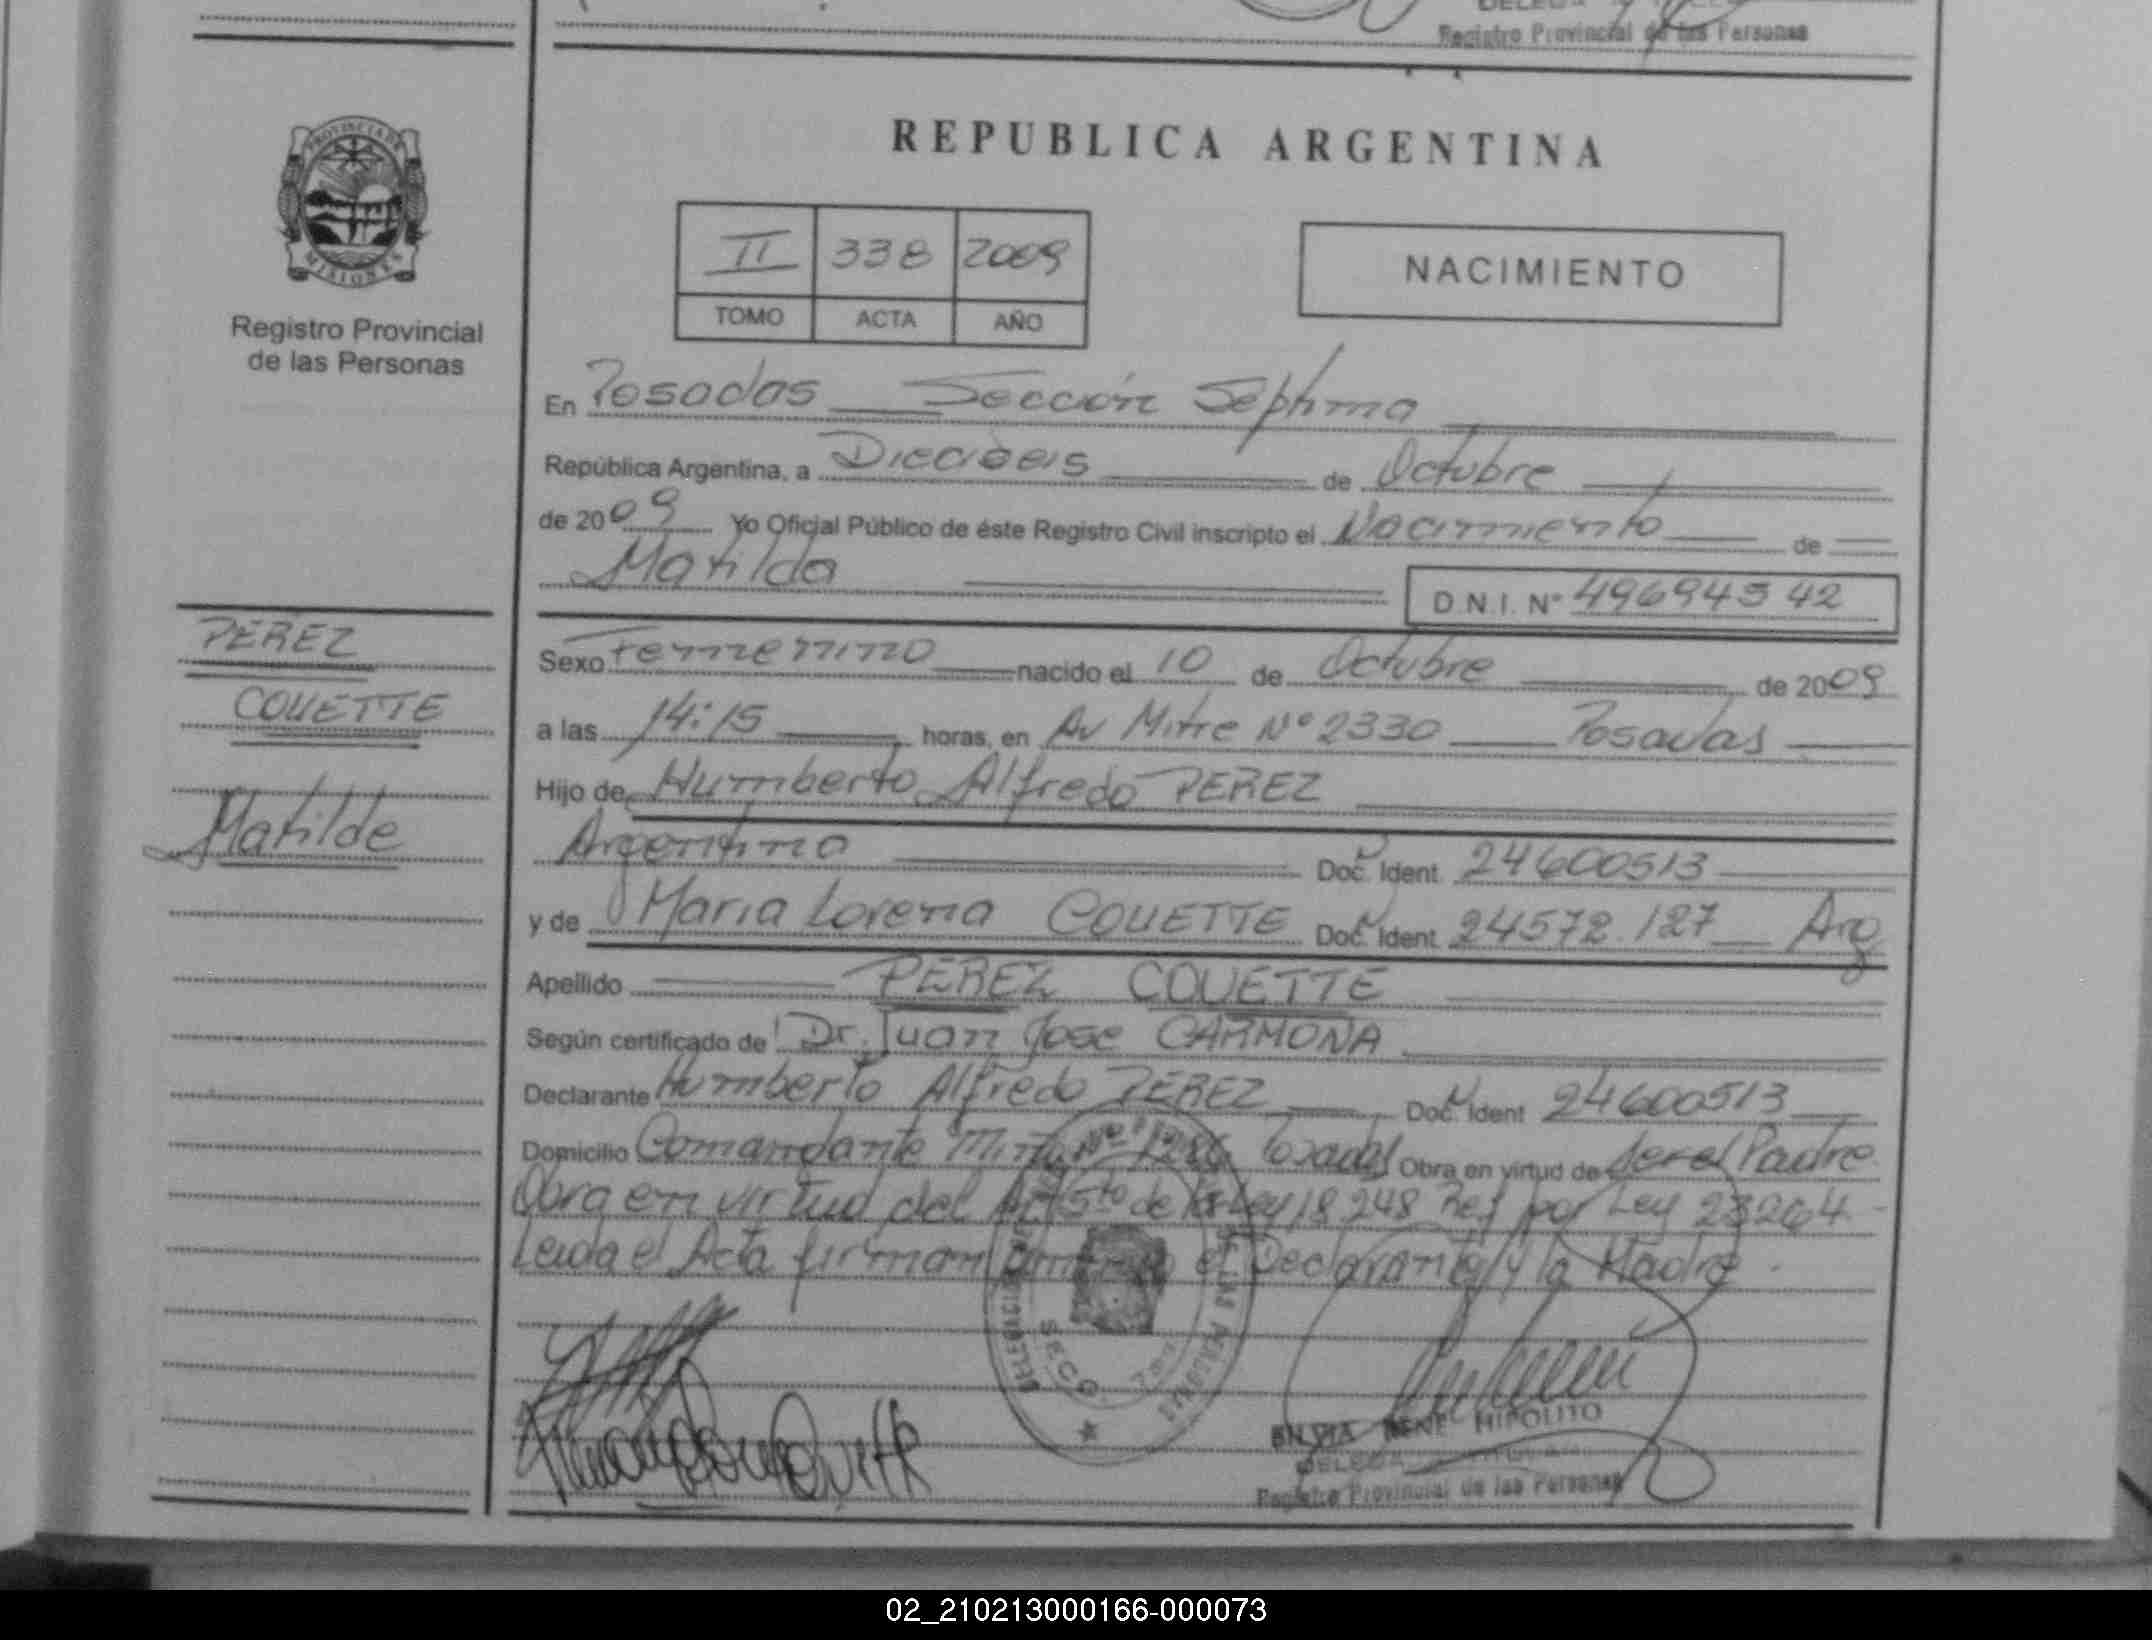 Registro Provincial de las Personas
PROVINCIA DE
MISIONES
Registro Provincial
de las Personas
REPUBLICA ARGENTINA
II 338 2009
TOMO ACTA AÑO
NACIMIENTO
En Posadas Sección Septima
República Argentina, a Dieciseis de Octubre
de 2009 Yo Oficial Público de éste Registro Civil inscripto el Nacimiento de
Matilda
D.N.I. Nº 49694342
PEREZ
COUETTE
Matilde
Sexo Femenino nacido el 10 de Octubre de 2009
a las 14:15 horas, en Av Mitre Nº 2330 Posadas
Hijo de Humberto Alfredo PEREZ
Argentino Doc. Ident. 24600513
y de Maria Lorena COUETTE Doc. Ident. 24572.127 Arg
Apellido PEREZ COUETTE
Según certificado de Dr. Juan Jose CARMONA
Declarante Humberto Alfredo PEREZ Doc. Ident 24600513
Domicilio Comandante Nº Posadas Obra en virtud de ser el Padre
Obra en virtud del Art 5to de la Ley 18248 Ref por Ley 23264
Leida el Acta firman el Declarante y la Madre
SECC.
RENE HIPOLITO
Registro Provincial de las Personas
02_210213000166-000073